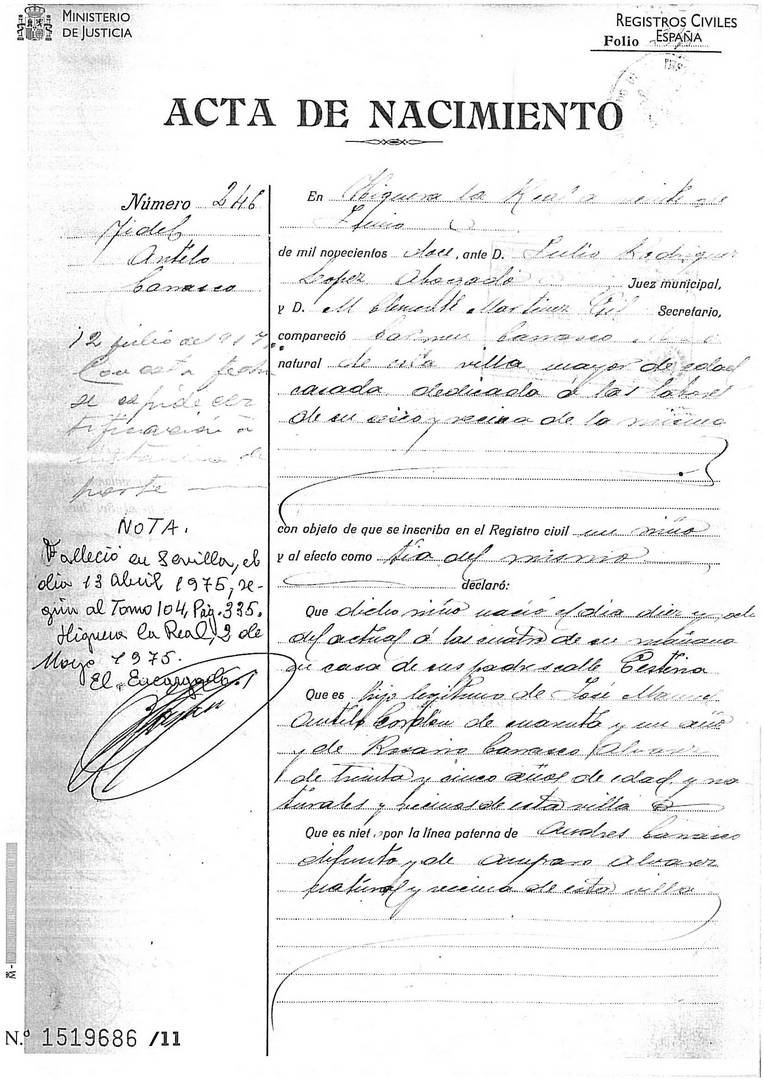 MINISTERIO
DE JUSTICIA
REGISTROS CIVILES
ESPAÑA
Folio
ACTA DE NACIMIENTO
Número 246
Fidel
Antilo
Carrasco
12 julio de 917.
Con esta fecha
se expide cer
tificación a
instancia de
parte
NOTA.
Falleció en Sevilla, el
día 13 Abril 1975, se-
gún al Tomo 104, Pág. 335.
Higuera la Real, 2 de
Mayo 1975.
El Encargado
En Higuera la Real a veinte de
Junio
de mil novecientos doce, ante D. Julio Rodriguez
Lopez Abogado Juez municipal,
y D. M Clemente Martinez Gil Secretario,
compareció Carmen Carrasco
natural de esta villa mayor de edad
casada dedicada á las labores
de su sexo y vecina de la misma
con objeto de que se inscriba en el Registro civil un niño
y al efecto como tia del mismo
declaró:
Que dicho niño nació el dia diez y ocho
del actual á las cuatro de su mañana
en casa de sus padres calle
Que es hijo legitimo de José Manuel
Antilo de cuarenta y un año
y de Rosario Carrasco Alvarez
de treinta y cinco años de edad y na
turales y vecinos de esta villa
Que es niet por la línea paterna de Andres Carrasco
difunto y de Amparo Alvarez
natural y vecina de esta villa
N.º 1519686 /11